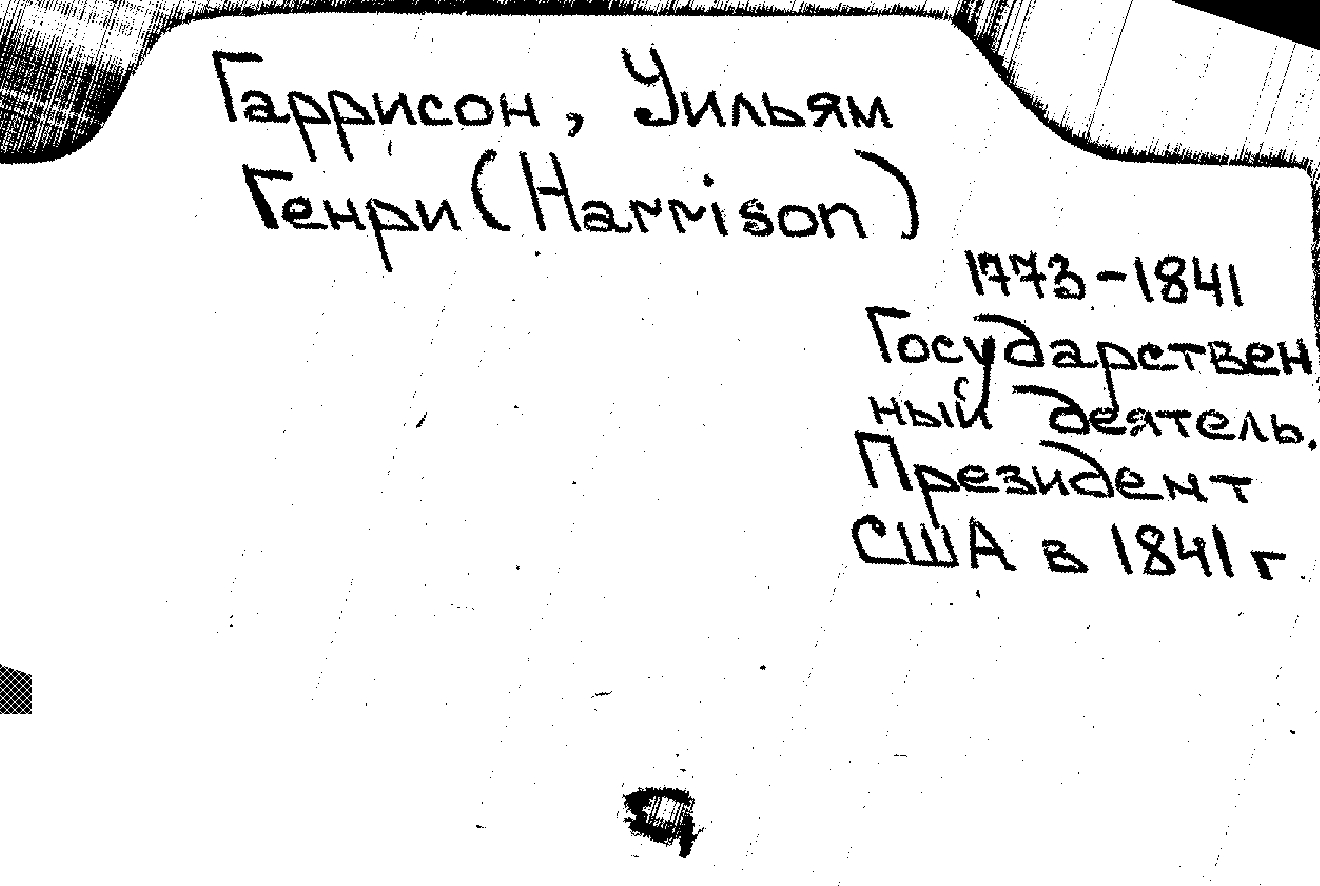 Гаррисон, Уильям
Генри (Harrison)
1773-1841
Государствен
ный деятель.
Президент
США в 1841 г